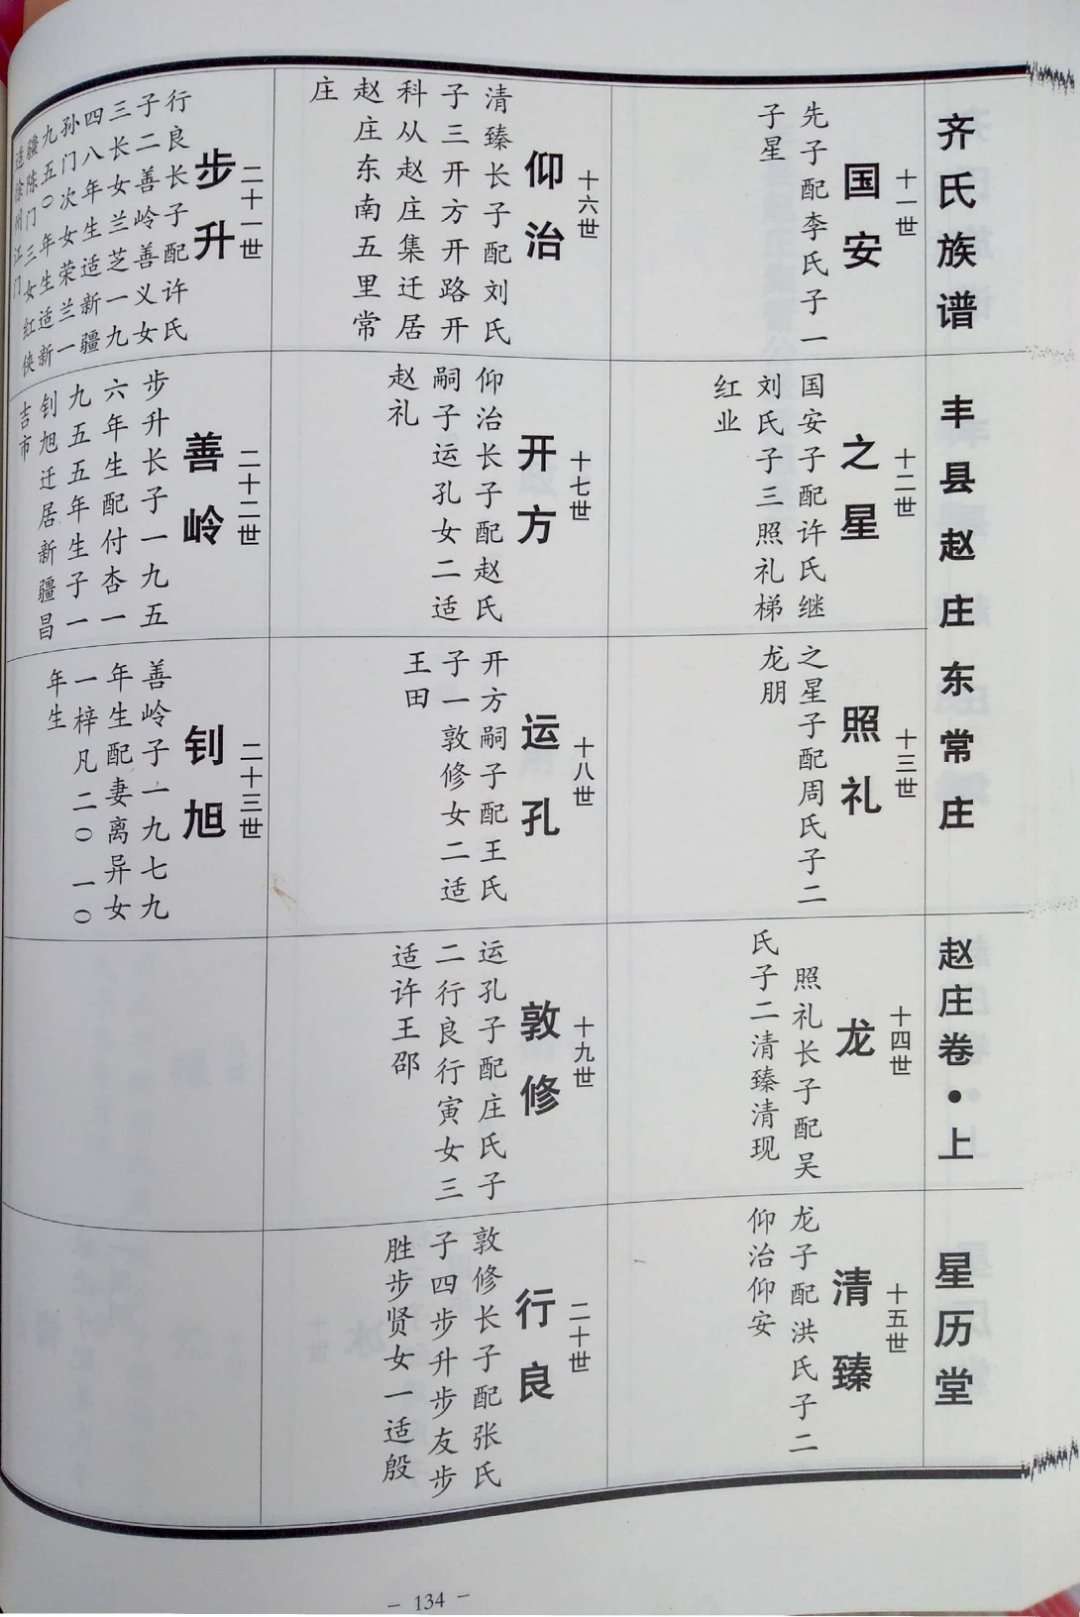 齐氏族谱
丰县赵庄东常庄
赵庄卷·上
星历堂
十一世
国安
先子配李氏子一
子星
十二世
之星
国安子配许氏继
刘氏子三照礼梯
红业
十三世
照礼
之星子配周氏子二
龙朋
十四世
龙
照礼长子配吴
氏子二清臻清现
十五世
清臻
龙子配洪氏子二
仰治仰安
十六世
仰治
清臻长子配刘氏
子三开方开路开
科从赵庄集迁居
赵庄东南五里常
庄
十七世
开方
仰治长子配赵氏
嗣子运孔女二适
赵礼
十八世
运孔
开方嗣子配王氏
子一敦修女二适
王田
十九世
敦修
运孔子配庄氏子
二行良行寅女三
适许王邵
二十世
行良
敦修长子配张氏
子四步升步友步
胜步贤女一适殷
二十一世
步升
行良长子配许氏
子二善岭善义女
三长女兰芝一九
四八年生适新疆
孙门次女荣兰一
九五〇年生适新
疆陈门三女红侠
适徐州江门
二十二世
善岭
步升长子一九五
六年生配付杏一
九五五年生子一
钊旭迁居新疆昌
吉市
二十三世
钊旭
善岭子一九七九
年生配妻离异女
一梓凡二〇一〇
年生
- 134 -